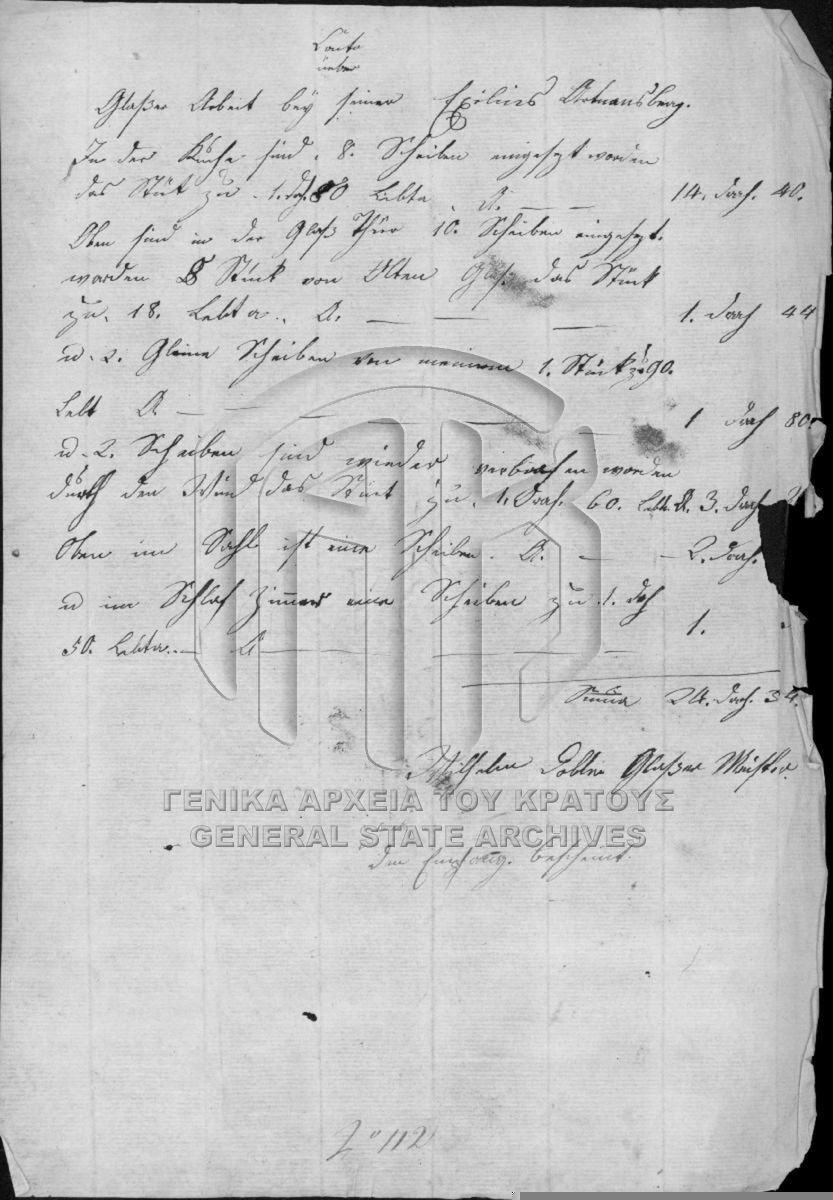 Conto
über
Glaßer Arbeit bey seiner Exilins Armansberg.
In der Küche sind 8. Scheiben eingesezt worden
das Stük zu 1. drh. 80 Lebta A. — — 14. drach. 40.
Oben sind in der Glaß Thür 10. Scheiben eingesezt.
worden 8 Stück von Alten Glas. das Stük
zu. 18. Lebta. A. — — — 1. drach 44
u. 2. Gleine Scheiben von meinem 1. Stück zu 90.
Lebt A — — — 1 drach 80.
u. 2. Scheiben sind wieder verbrochen worden
durch den Wind das Stük zu. 1. drach. 60. Lebt. A. 3. drach
Oben im Sahl ist eine Scheiben. A. — — 2. drach.
u im Schlaf Zimmer eine Scheiben zu. 1. drh
50. Lebta. — A — — — 1.
Suma 24. drach. 34.
Wilhelm Glaßer Meister
ΓΕΝΙΚΑ ΑΡΧΕΙΑ ΤΟΥ ΚΡΑΤΟΥΣ
GENERAL STATE ARCHIVES
den Empfang. bescheint.
112